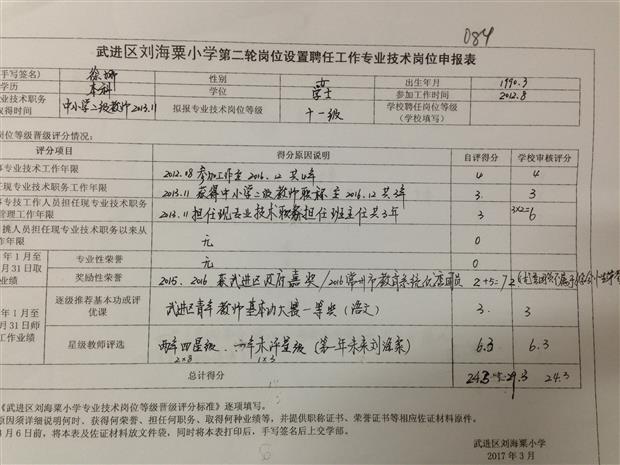 084
武进区刘海粟小学第二轮岗位设置聘任工作专业技术岗位申报表
手写签名） 徐娜 性别 女 出生年月 1990.3
学历 本科 学位 学士 参加工作时间 2012.8
业技术职务 取得时间 中小学二级教师2013.11 拟报专业技术岗位等级 十一级 学校聘任岗位等级 （学校填写）
岗位等级晋级评分情况：
评分项目 得分原因说明 自评得分 学校审核评分
事专业技术工作年限 2012.08参加工作至2016.12共4年 4 4
任现专业技术职务工作年限 2013.11获得中小学二级教师职称至2016.12共3年 3. 3
事专技工作人员担任现专业技术职务 管理工作年限 2013.11担任现专业技术职务担任班主任共3年 3 3×2=6
挑人员担任现专业技术职务以来从 作年限 无 0
年1月至 专业性荣誉 无 0
月31日取 业绩 奖励性荣誉 2015、2016获武进区政府嘉奖/2016常州市教育系统优秀团员 2+5=7 2
年1月至 逐级推荐基本功或评优课 武进区青年教师基本功大赛一等奖（语文） 3. 3
月31日师 工作业绩 星级教师评选 两年四星级、一年未评星级（第一年未来刘海粟） 6.3 6.3
2×8 1×3
总计得分 24.3 29.3 24.3
《武进区刘海粟小学专业技术岗位等级晋级评分标准》逐项填写。
原因须详细说明何时、获得何荣誉、担任何职务、取得何种业绩等，并提供职称证书、荣誉证书等相应佐证材料原件。
月6日前，将本表及佐证材料放文件袋，同时将本表打印后，手写签名后上交学部。
武进区刘海粟小学
2017年3月